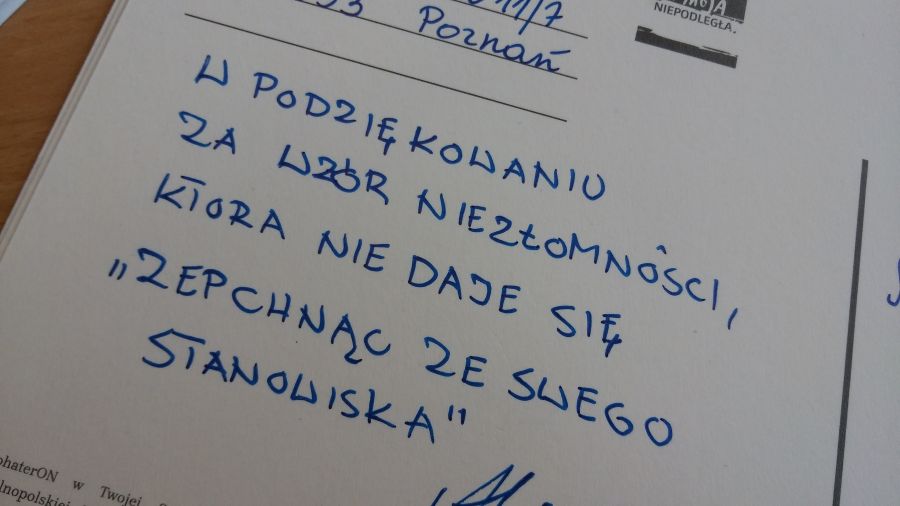 11/7
Poznań
MOJA
NIEPODLEGŁA.
W PODZIĘKOWANIU
ZA WZÓR NIEZŁOMNOŚCI,
KTORA NIE DAJE SIĘ
„ZEPCHNĄC ZE SWEGO
STANOWISKA"
ohaterON w Twojej
lnopolskiej